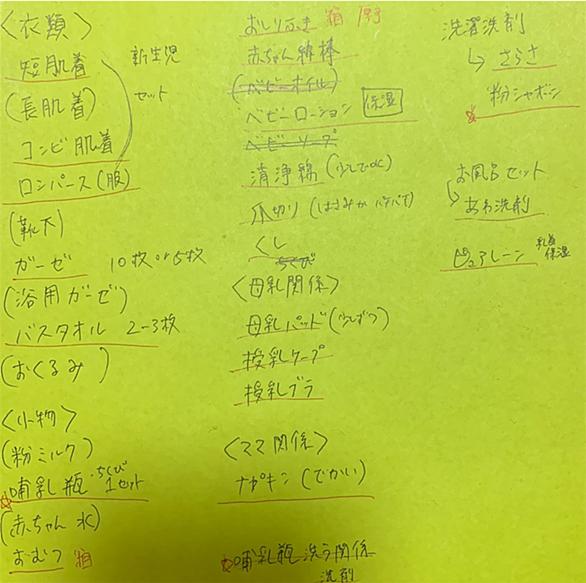 〈衣類〉
短肌着
新生児
セット
(長肌着)
コンビ肌着
ロンパース(服)
(靴下)
ガーゼ 10枚or5枚
(浴用ガーゼ)
バスタオル 2~3枚
(おくるみ)
〈小物〉
(粉ミルク)
哺乳瓶・ちくび1セット
(赤ちゃん水)
おむつ 箱
おしりふき 箱
赤ちゃん綿棒
(ベビーオイル)
ベビーローション 保湿
ベビーソープ
清浄綿(少しでOK)
爪切り(はさみか
くし
ちくび
〈母乳関係〉
母乳パッド(少しずつ)
授乳ケープ
授乳ブラ
〈ママ関係〉
ナプキン(でかい)
哺乳瓶洗う関係
洗剤
洗濯洗剤
↳さらさ
粉シャボン
お風呂セット
↳あわ洗剤
ピュアレーン 乳首保湿